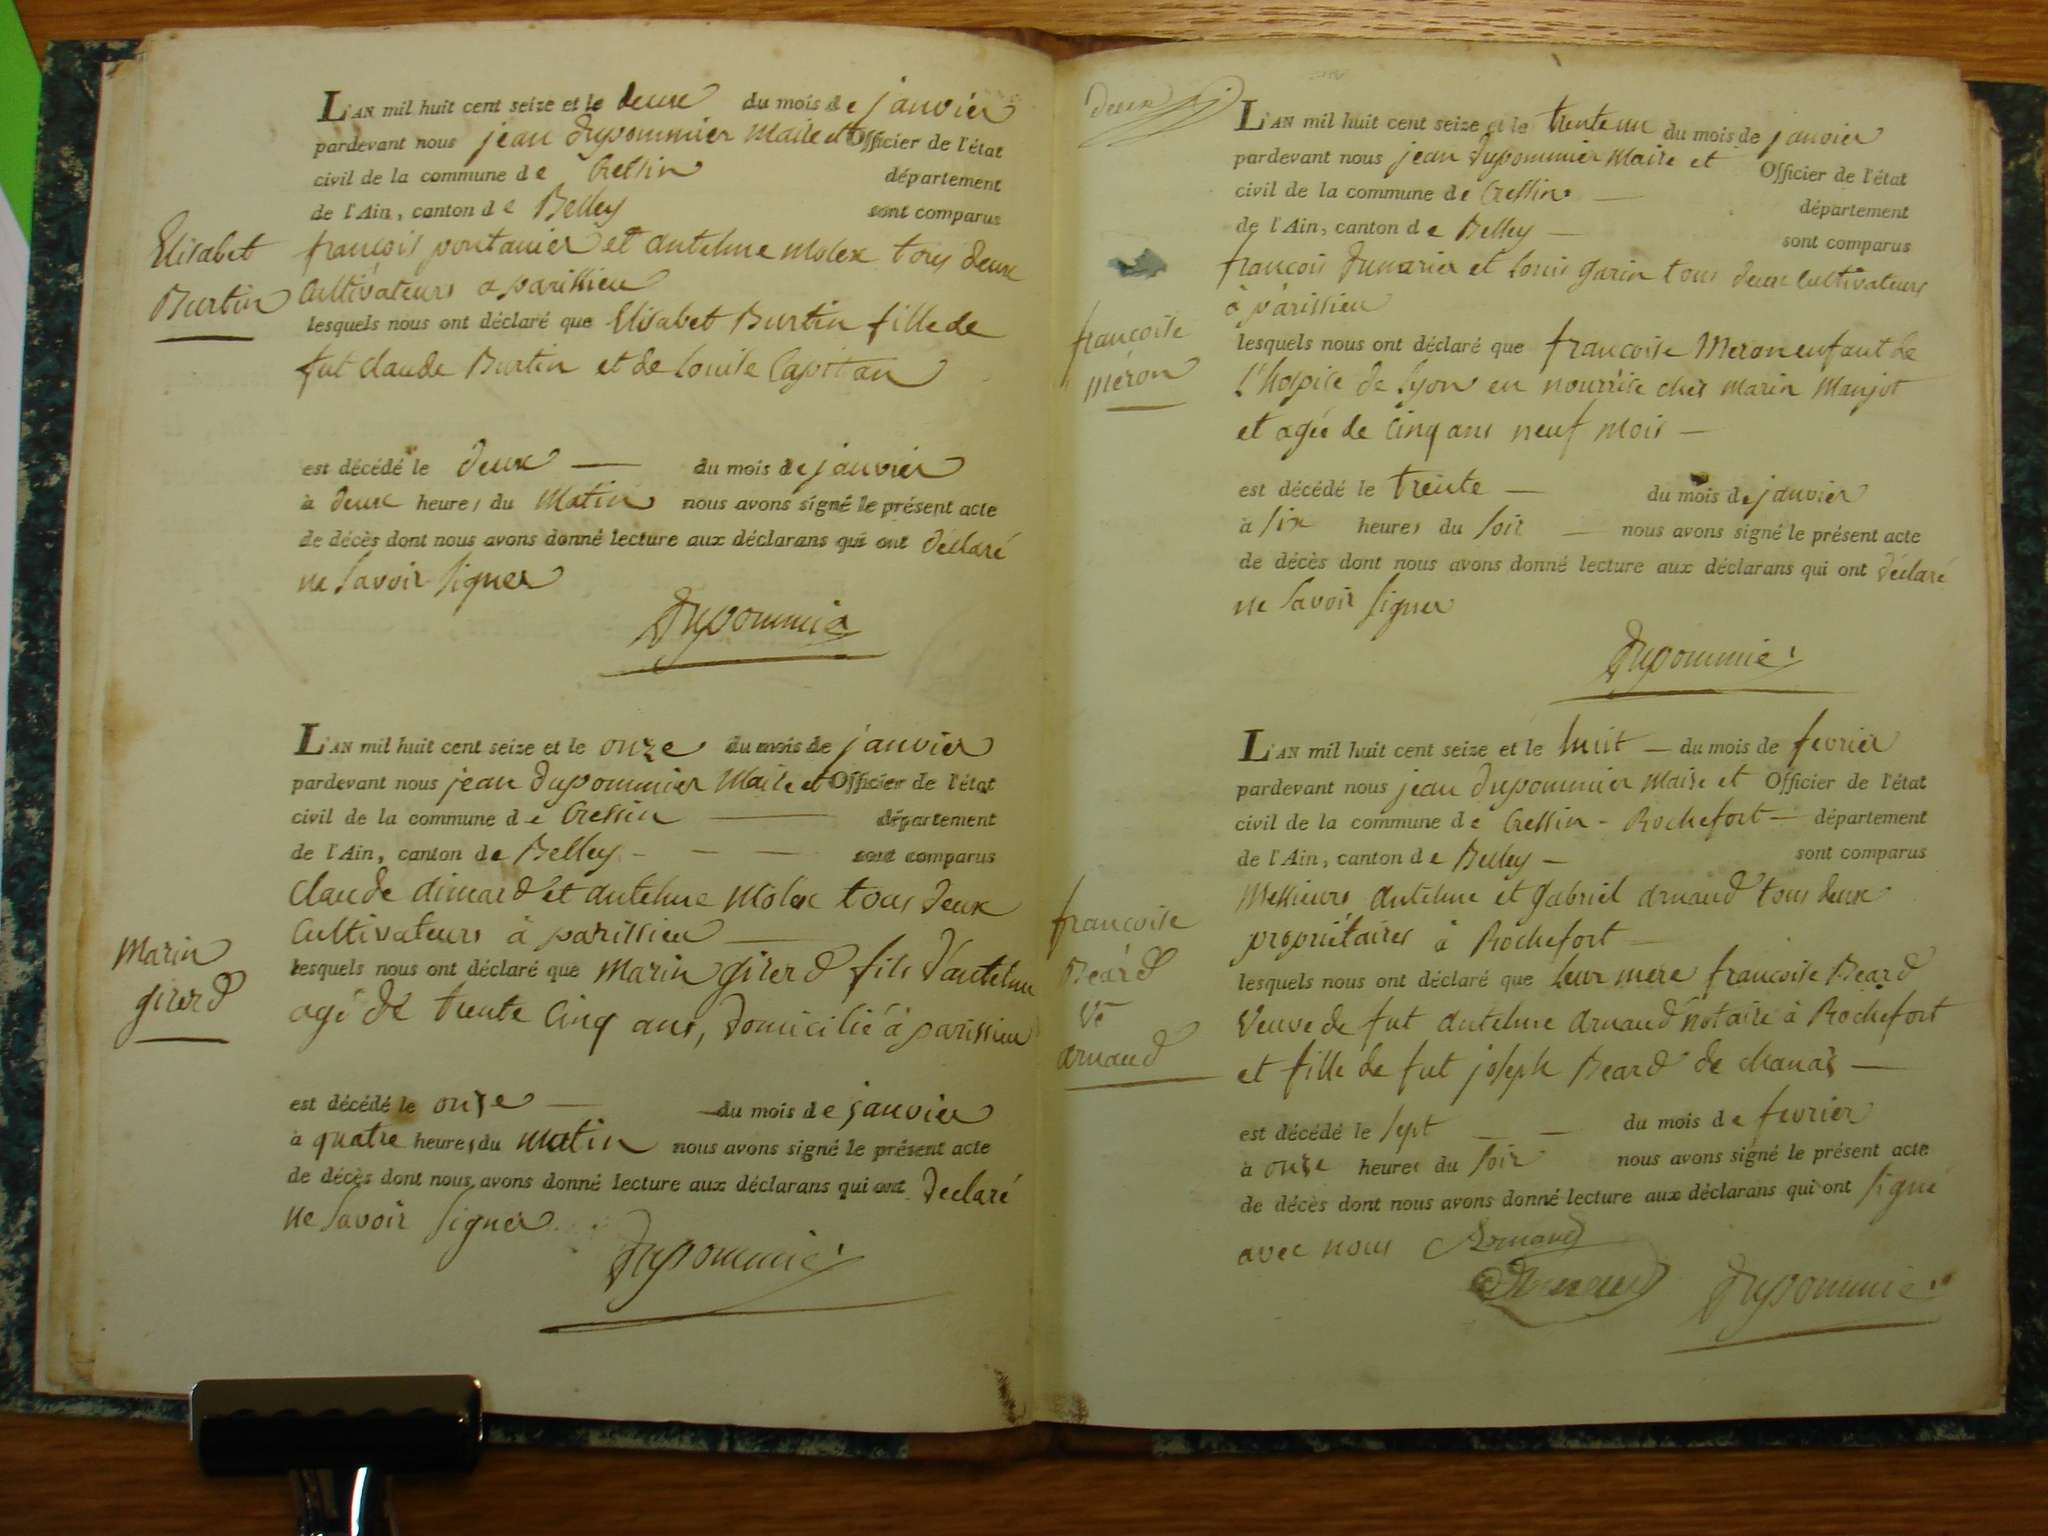 L'AN mil huit cent seize et le deux du mois de janvier
pardevant nous jean Dupommier Maire et Officier de l'état
civil de la commune de Cressin département
de l'Ain, canton de Belley sont comparus
françois pontanier et antelme Molex tous deux
Cultivateurs a parissieu
Elisabet
Burtin
lesquels nous ont déclaré que Elisabet Burtin fille de
fut claude Burtin et de Louise Capitan
est décédé le deux du mois de janvier
à deux heures du Matin nous avons signé le présent acte
de décès dont nous avons donné lecture aux déclarans qui ont déclaré
ne savoir signer
Dupommier
L'AN mil huit cent seize et le onze du mois de janvier
pardevant nous jean Dupommier Maire et Officier de l'état
civil de la commune de Cressin département
de l'Ain, canton de Belley sont comparus
claude et antelme Molex tous deux
Cultivateurs à parissieu
Marin
girerd
lesquels nous ont déclaré que Marin girerd fils d'antelme
agé de trente cinq ans, domicilié à parissieu
est décédé le onze du mois de janvier
à quatre heures du Matin nous avons signé le présent acte
de décès dont nous avons donné lecture aux déclarans qui ont déclaré
ne savoir signer
Dupommier
deux
L'AN mil huit cent seize et le trente un du mois de janvier
pardevant nous jean Dupommier Maire et Officier de l'état
civil de la commune de Cressin département
de l'Ain, canton de Belley sont comparus
françois et Louis garin tous deux Cultivateurs
à parissieu
françoise
méron
lesquels nous ont déclaré que françoise Meron enfant de
l'hospice de Lyon en nourrise chés Marin Manjot
et agée de Cinq ans neuf mois
est décédé le trente du mois de janvier
à six heures du soir nous avons signé le présent acte
de décès dont nous avons donné lecture aux déclarans qui ont déclaré
ne savoir signer
Dupommier
L'AN mil huit cent seize et le huit du mois de fevrier
pardevant nous jean Dupommier Maire et Officier de l'état
civil de la commune de Cressin - Rochefort département
de l'Ain, canton de Belley sont comparus
Messieurs antelme et gabriel arnaud tous deux
propriétaires à Rochefort
françoise
Béard
Ve
arnaud
lesquels nous ont déclaré que leur mere françoise Beard
Veuve de fut antelme arnaud notaire à Rochefort
et fille de fut joseph Beard de chanaz
est décédé le sept du mois de fevrier
à onze heures du soir nous avons signé le présent acte
de décès dont nous avons donné lecture aux déclarans qui ont signé
avec nous Arnaud
Arnaud Dupommier